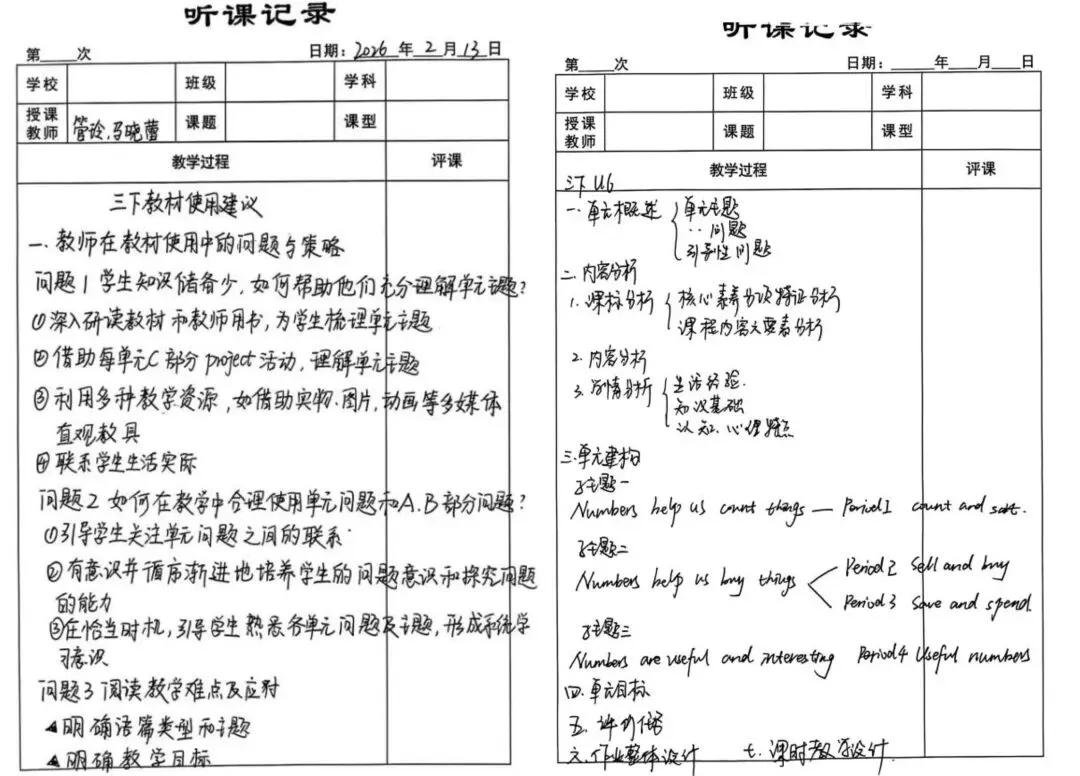 听课记录
第____次 日期：2026年2月13日
学校 班级 学科
授课教师 管玲、马晓蕾 课题 课型
教学过程 评课
三下教材使用建议
一、教师在教材使用中的问题与策略
问题1 学生知识储备少，如何帮助他们充分理解单元主题？
①深入研读教材和教师用书，为学生梳理单元主题
②借助每单元C部分project活动，理解单元主题
③利用多种教学资源，如借助实物、图片，动画等多媒体
直观教具
④联系学生生活实际
问题2 如何在教学中合理使用单元问题和A、B部分问题？
①引导学生关注单元问题之间的联系
②有意识并循序渐进地培养学生的问题意识和探究问题
的能力
③在恰当时机，引导学生熟悉各单元问题及主题，形成系统学
习意识
问题3 阅读教学难点及应对
▲明确语篇类型和主题
▲明确教学目标
听课记录
第____次 日期：____年____月____日
学校 班级 学科
授课教师 课题 课型
教学过程 评课
三下 U6
一、单元概述 单元主题
‥ 问题
引导性问题
二、内容分析
1. 课标分析 核心素养分项特征分析
课程内容六要素分析
2. 内容分析
3. 学情分析 生活经验
知识基础
认知、心理特点
三、单元建构
子主题一
Numbers help us count things — Period 1 count and sort.
子主题二
Numbers help us buy things Period 2 Sell and buy
Period 3 Save and spend
子主题三
Numbers are useful and interesting Period 4 Useful numbers
四、单元目标
五、评价
六、作业整体设计 七、课时教学设计